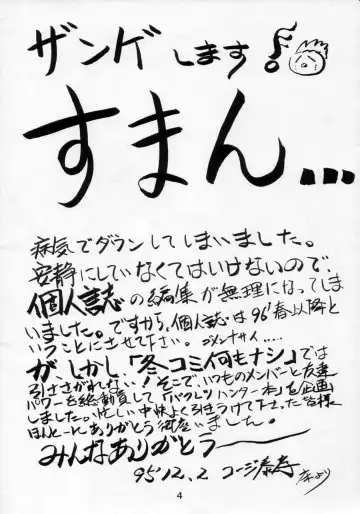 ザンゲします!
すまん…
病気でダウンしてしまいました。
安静にしていなくてはいけないので、
個人誌の編集が無理になってしま
いました。ですから、個人誌は96'春以降と
いうことにさせて下さい。ゴメンナサイ……
が、しかし、「冬コミ何もナシ」では
引きさがれない!そこで、いつものメンバーと友達
パワーを総動員して「バクレツハンター本」を企画
しました。忙しい中快よく引きうけて下さった皆様
ほんとーにありがとうございました。
みんなありがとうーー
95'12.2 コージ より
4